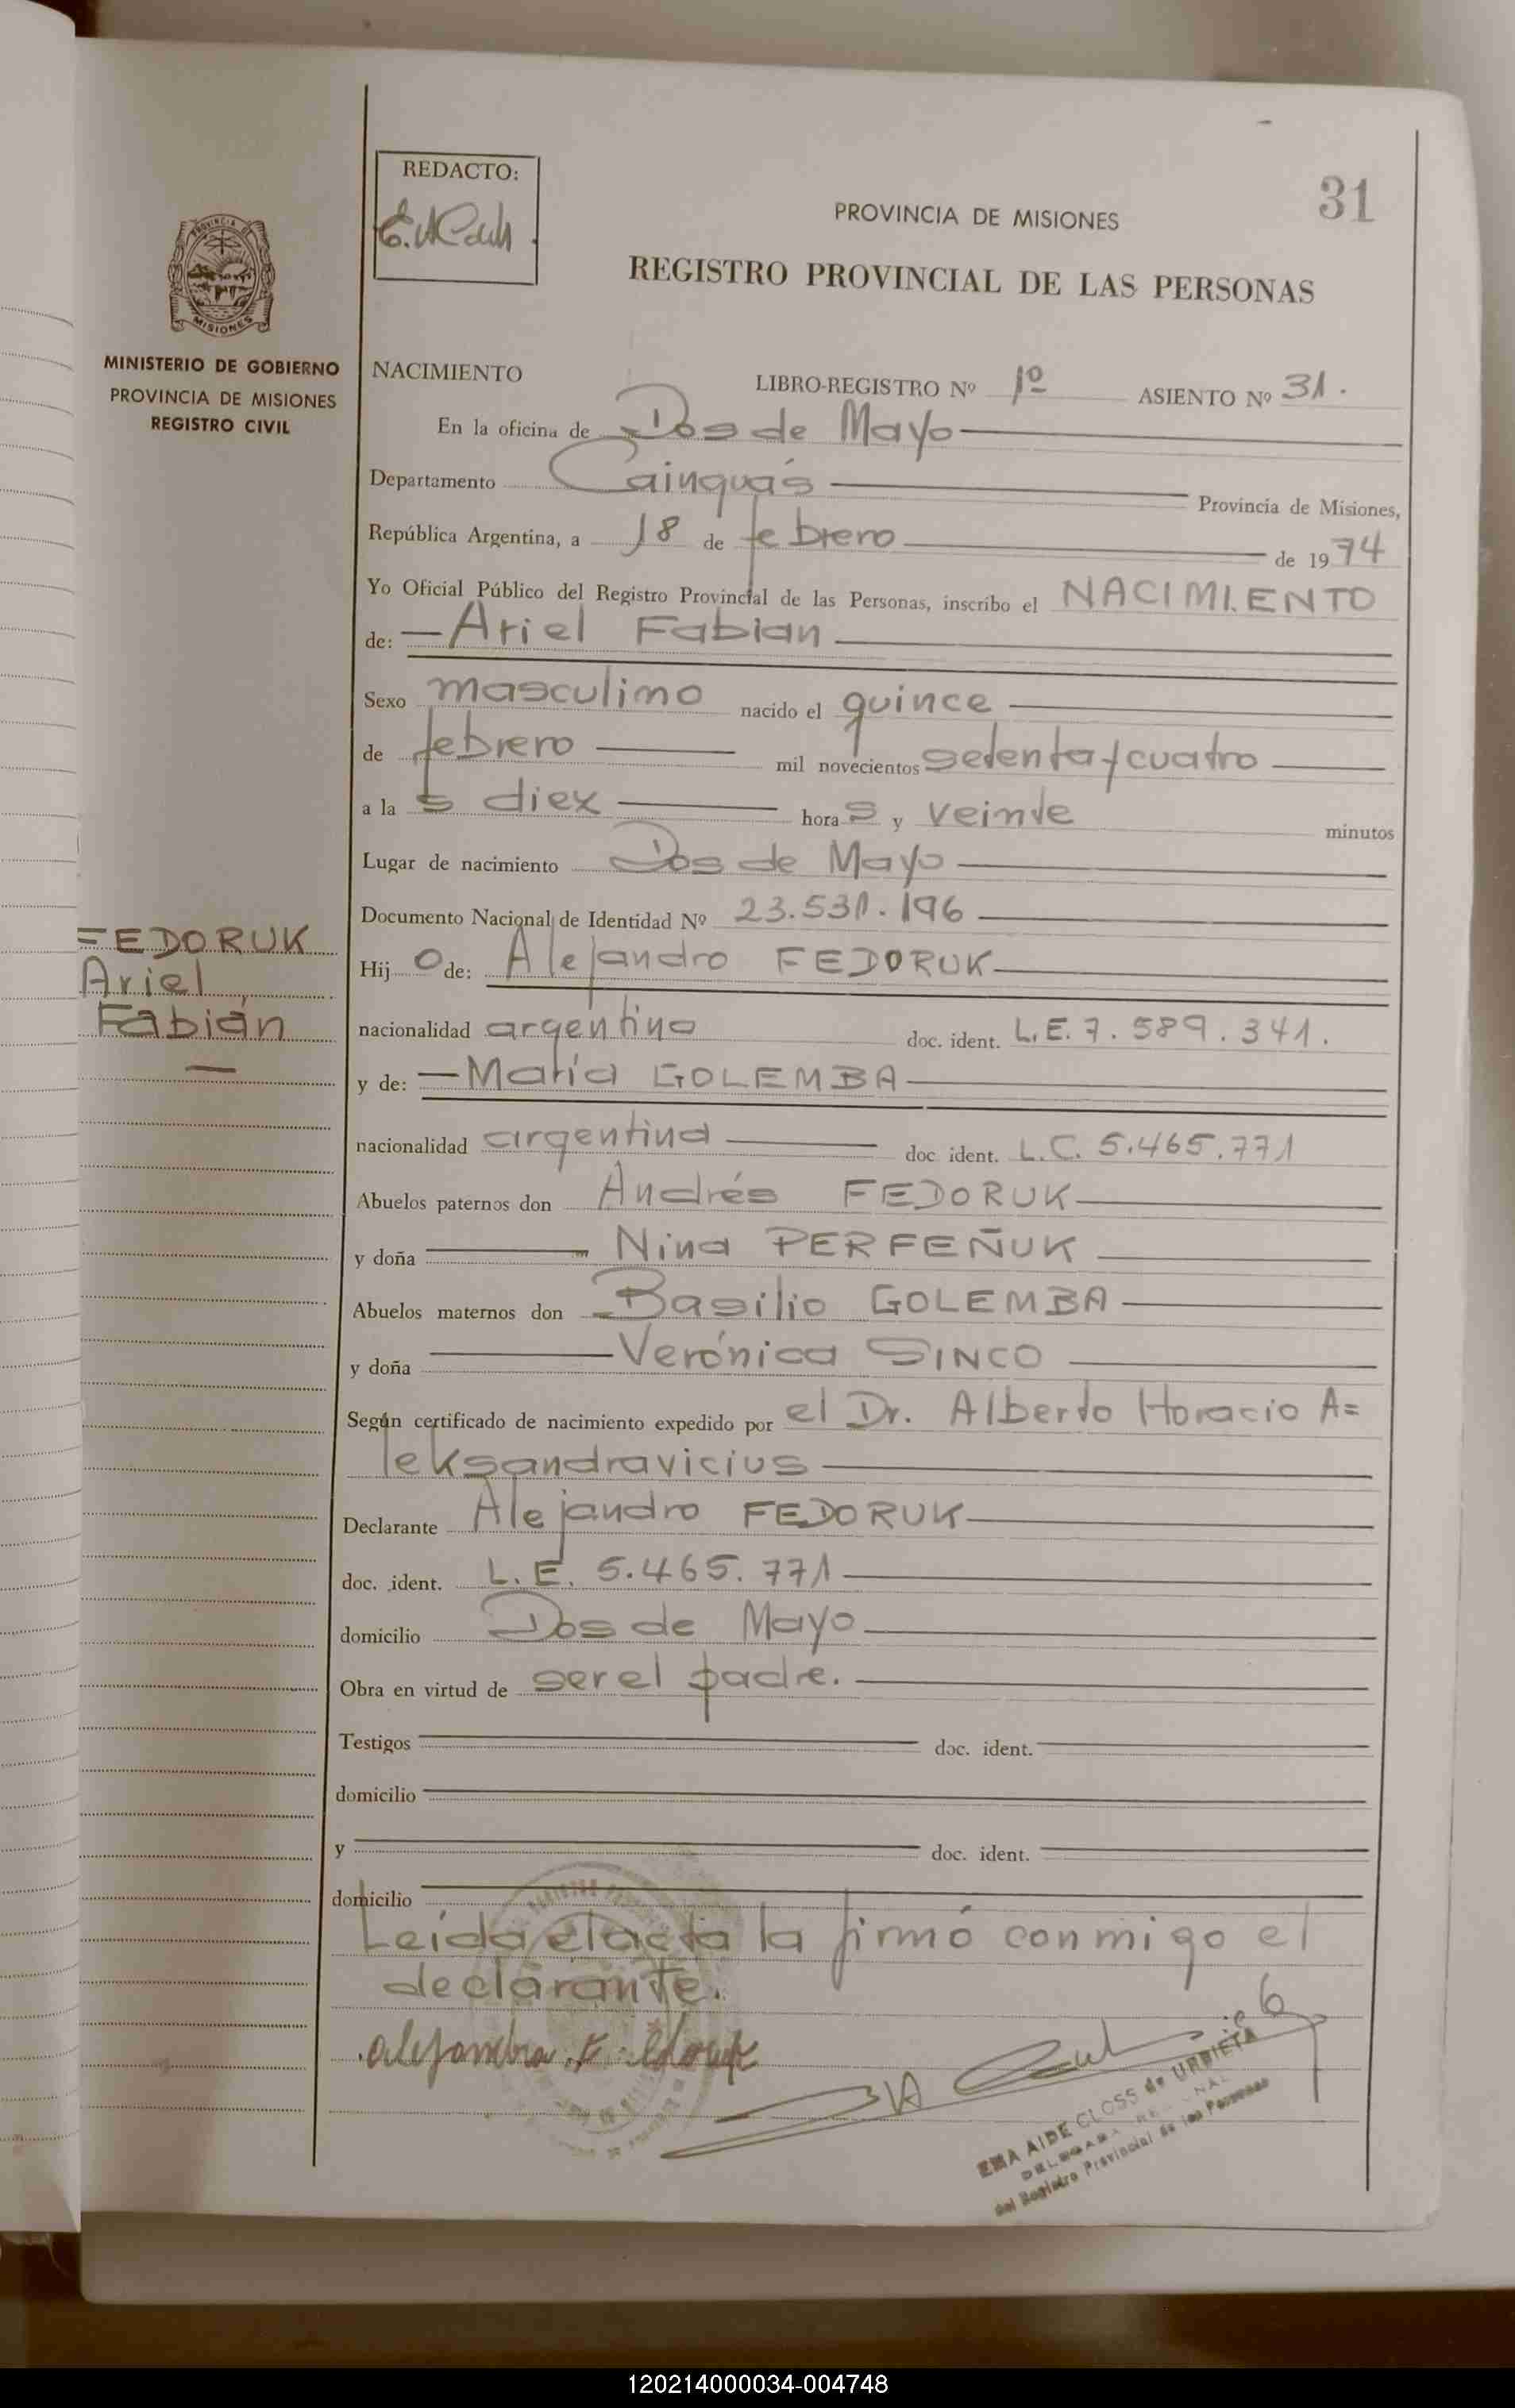 REDACTO:
31
PROVINCIA DE MISIONES
REGISTRO PROVINCIAL DE LAS PERSONAS
PROVINCIA DE
MISIONES
MINISTERIO DE GOBIERNO
PROVINCIA DE MISIONES
REGISTRO CIVIL
NACIMIENTO LIBRO-REGISTRO Nº 1º ASIENTO Nº 31.
En la oficina de Dos de Mayo
Departamento Cainguás Provincia de Misiones,
República Argentina, a 18 de febrero de 1974
Yo Oficial Público del Registro Provincial de las Personas, inscribo el NACIMIENTO
de: Ariel Fabian
Sexo masculino nacido el quince
de febrero mil novecientos setenta y cuatro
a la s diez hora s y veinte minutos
Lugar de nacimiento Dos de Mayo
Documento Nacional de Identidad Nº 23.531.196
FEDORUK
Ariel
Fabián
Hij o de: Alejandro FEDORUK
nacionalidad argentino doc. ident. L.E. 7.589.341.
y de: María GOLEMBA
nacionalidad argentina doc ident. L.C. 5.465.771
Abuelos paternos don Andrés FEDORUK
y doña Nina PERFEÑUK
Abuelos maternos don Basilio GOLEMBA
y doña Verónica SINCO
Según certificado de nacimiento expedido por el Dr. Alberto Horacio A=
leksandravicius
Declarante Alejandro FEDORUK
doc. ident. L.E. 5.465.771
domicilio Dos de Mayo
Obra en virtud de ser el padre.
Testigos doc. ident.
domicilio
y doc. ident.
domicilio
Leída el acta la firmó conmigo el
declarante.
EMA AIDE CLOSS de URBIETA
del Registro Provincial de las Personas
120214000034-004748